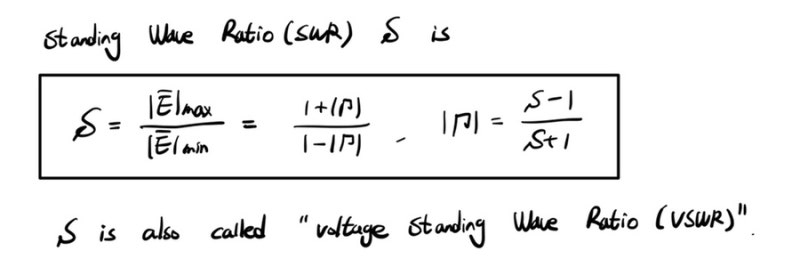 Standing Wave Ratio (SWR) S is
S = |E̅|max / |E̅|min = 1+|Γ| / 1-|Γ| , |Γ| = S-1 / S+1
S is also called "voltage Standing Wave Ratio (VSWR)".